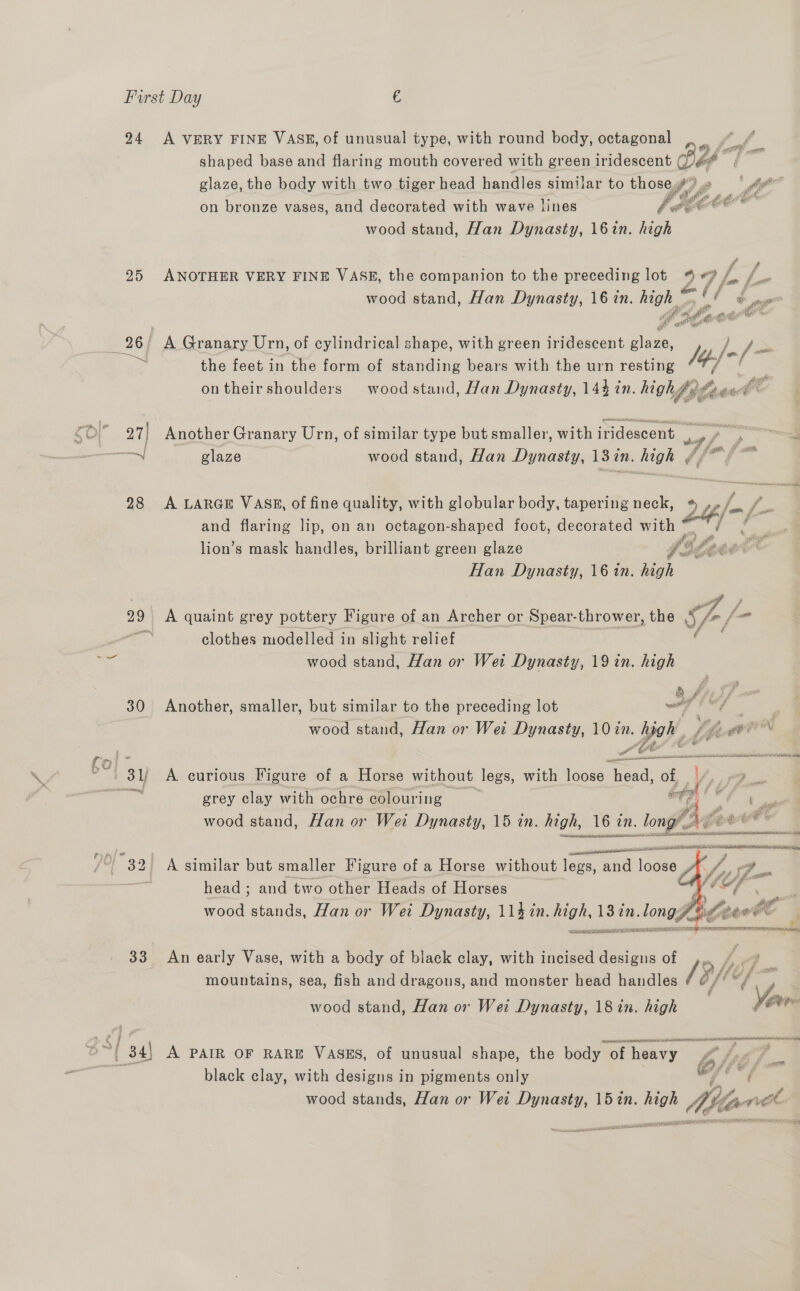 First Day 6
24 A VERY FINE VASE, of unusual type, with round body, octagonal
shaped base and flaring mouth covered with green iridescent
glaze, the body with two tiger head handles similar to those
on bronze vases, and decorated with wave lines
wood stand, Han Dynasty, 16 in. high
25 ANOTHER VERY FINE VASE, the companion to the preceding lot
wood stand, Han Dynasty, 16 in. high
26 A Granary Urn, of cylindrical shape, with green iridescent glaze,
the feet in the form of standing bears with the urn resting
on their shoulders wood stand, Han Dynasty, 14½ in. high
50/- 27 Another Granary Urn, of similar type but smaller, with iridescent
glaze wood stand, Han Dynasty, 13 in. high
28 A LARGE VASE, of fine quality, with globular body, tapering neck,
and flaring lip, on an octagon-shaped foot, decorated with
lion's mask handles, brilliant green glaze
Han Dynasty, 16 in. high
29 A quaint grey pottery Figure of an Archer or Spear-thrower, the
clothes modelled in slight relief
wood stand, Han or Wei Dynasty, 19 in. high
30 Another, smaller, but similar to the preceding lot
wood stand, Han or Wei Dynasty, 10 in. high
31 A curious Figure of a Horse without legs, with loose head, of
grey clay with ochre colouring
wood stand, Han or Wei Dynasty, 15 in. high, 16 in. long
32 A similar but smaller Figure of a Horse without legs, and loose
head; and two other Heads of Horses
wood stands, Han or Wei Dynasty, 11½ in. high, 13 in. long
33 An early Vase, with a body of black clay, with incised designs of
mountains, sea, fish and dragons, and monster head handles
wood stand, Han or Wei Dynasty, 18 in. high
34 A PAIR OF RARE VASES, of unusual shape, the body of heavy
black clay, with designs in pigments only
wood stands, Han or Wei Dynasty, 15 in. high